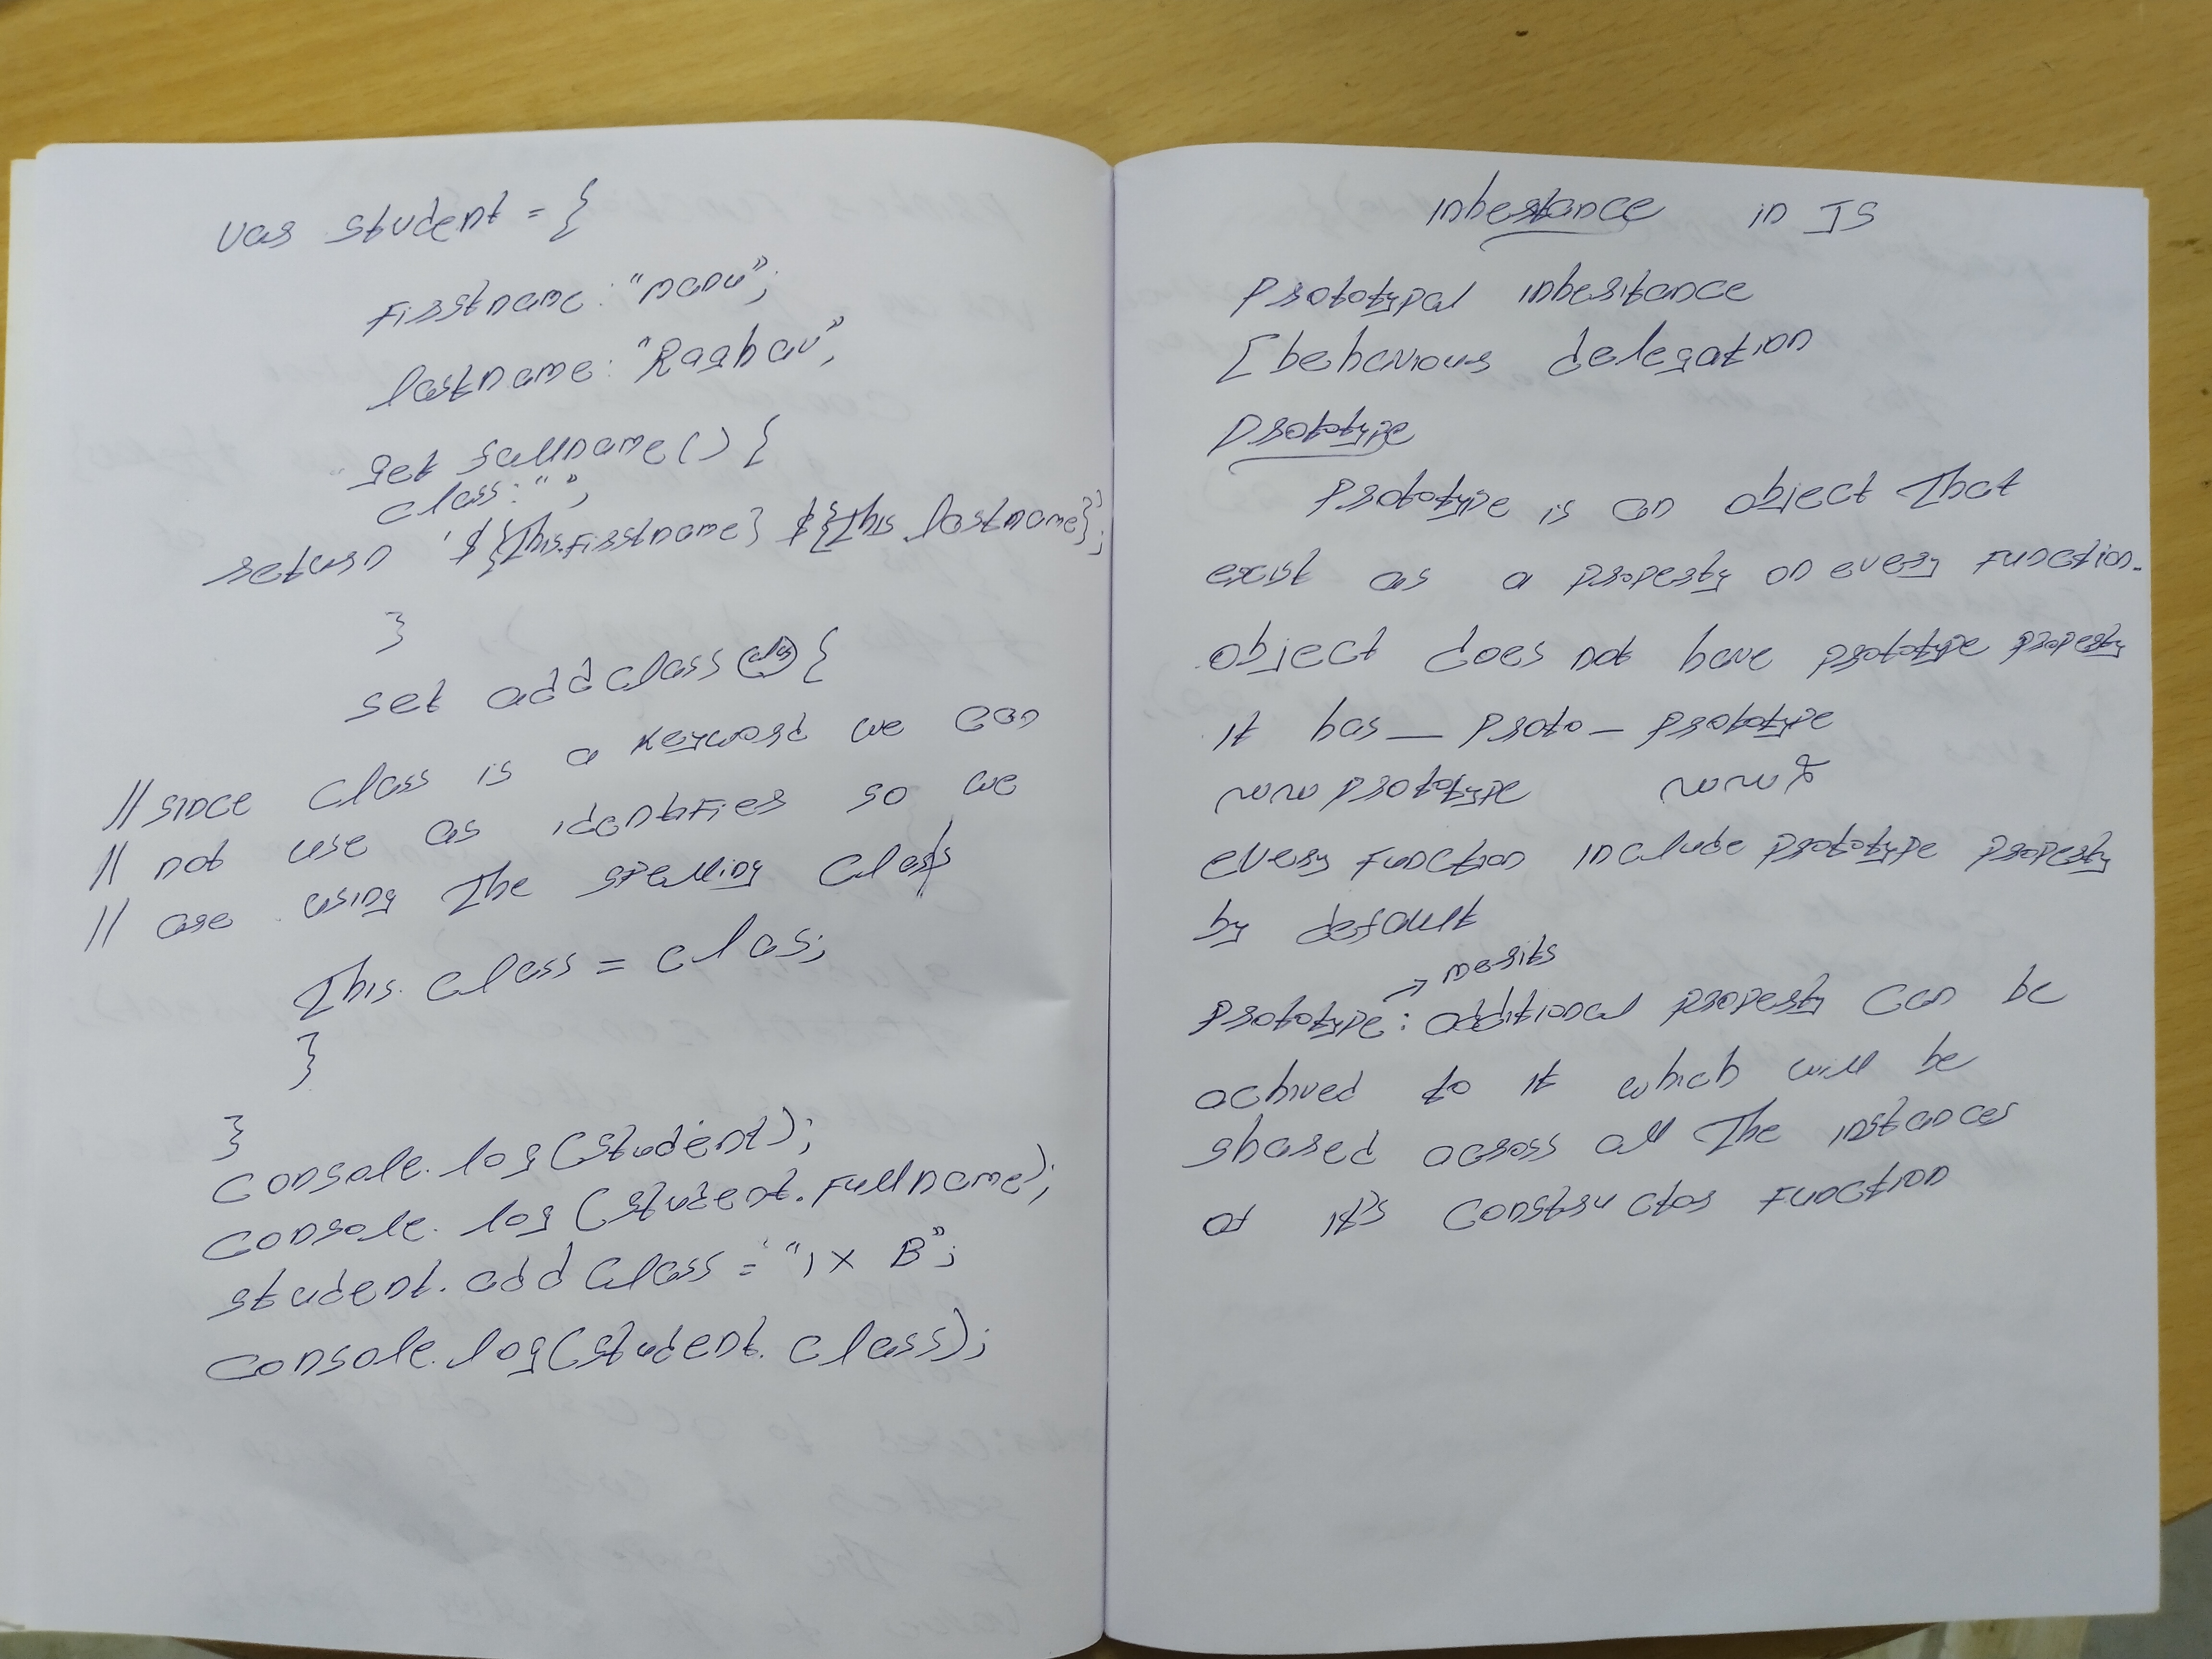 var student = {
Firstname: "manu";
lastname: "Raghav";
get fullname() {
class: " ";
return '${This.Firstname} ${This.lastname}';
}
set addclass(clas) {
// since class is a keyword we can
// not use as identifier so we
// are using the spelling clas
This.class = clas;
}
}
console.log(student);
console.log(student.Fullname);
student.addclass = "ix B";
console.log(student.class);
inherstance in JS
Prototypal inheritance
[behaviour delegation
Prototype
Prototype is an object That
exist as a property on every Function.
object does not have prototype property
it has _ proto _ prototype
prototype
every Function include prototype property
by default
→ merits
Prototype: additional property can be
achived to it which will be
shared across all The instances
of it's constructor Function